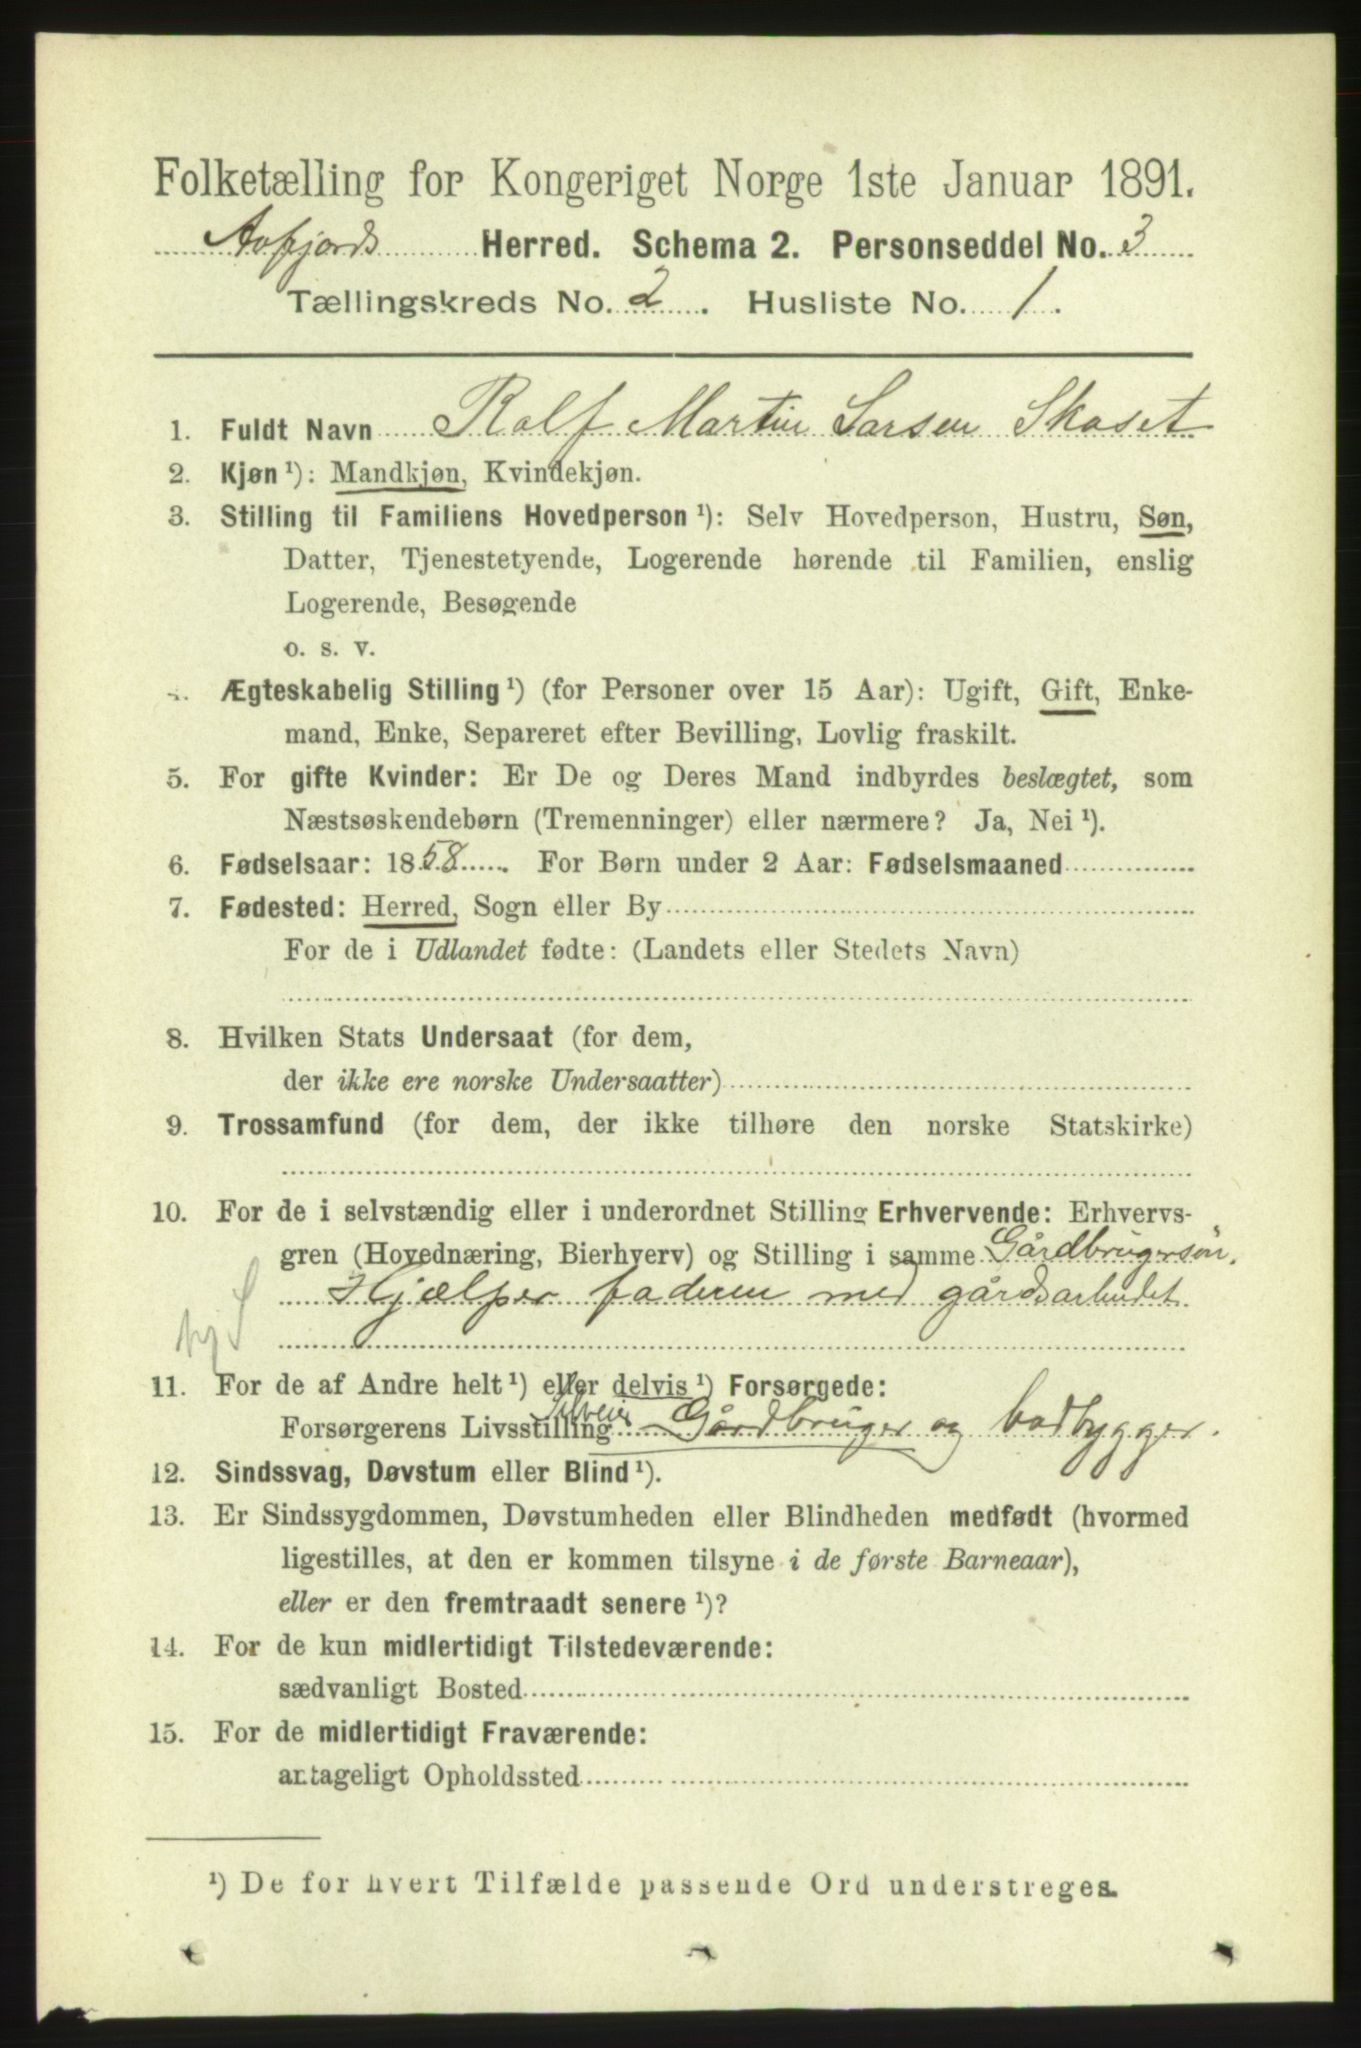 Folketælling for Kongeriget Norge 1ste Januar 1891.
Aafjords Herred. Schema 2. Personseddel No. 3
Tællingskreds No. 2. Husliste No. 1.
1. Fuldt Navn Rolf Martin Larsen Skaset
2. Kjøn ¹): Mandkjøn, Kvindekjøn.
3. Stilling til Familiens Hovedperson ¹): Selv Hovedperson, Hustru, Søn,
Datter, Tjenestetyende, Logerende hørende til Familien, enslig
Logerende, Besøgende
o. s. v.
4. Ægteskabelig Stilling ¹) (for Personer over 15 Aar): Ugift, Gift, Enke-
mand, Enke, Separeret efter Bevilling, Lovlig fraskilt.
5. For gifte Kvinder: Er De og Deres Mand indbyrdes beslægtet, som
Næstsøskendebørn (Tremenninger) eller nærmere? Ja, Nei ¹).
6. Fødselsaar: 1858. For Børn under 2 Aar: Fødselsmaaned
7. Fødested: Herred, Sogn eller By
For de i Udlandet fødte: (Landets eller Stedets Navn)
8. Hvilken Stats Undersaat (for dem,
der ikke ere norske Undersaatter)
9. Trossamfund (for dem, der ikke tilhøre den norske Statskirke)
10. For de i selvstændig eller i underordnet Stilling Erhvervende: Erhvervs-
gren (Hovednæring, Bierhverv) og Stilling i samme Gårdbrugersøn.
Hjælper faderen med gårdsarbeidet
11. For de af Andre helt ¹) eller delvis ¹) Forsørgede:
Forsørgerens Livsstilling Selveier Gårdbruger og baadbygger.
12. Sindssvag, Døvstum eller Blind ¹).
13. Er Sindssygdommen, Døvstumheden eller Blindheden medfødt (hvormed
ligestilles, at den er kommen tilsyne i de første Barneaar),
eller er den fremtraadt senere ¹)?
14. For de kun midlertidigt Tilstedeværende:
sædvanligt Bosted
15. For de midlertidigt Fraværende:
antageligt Opholdssted
¹) De for hvert Tilfælde passende Ord understreges.